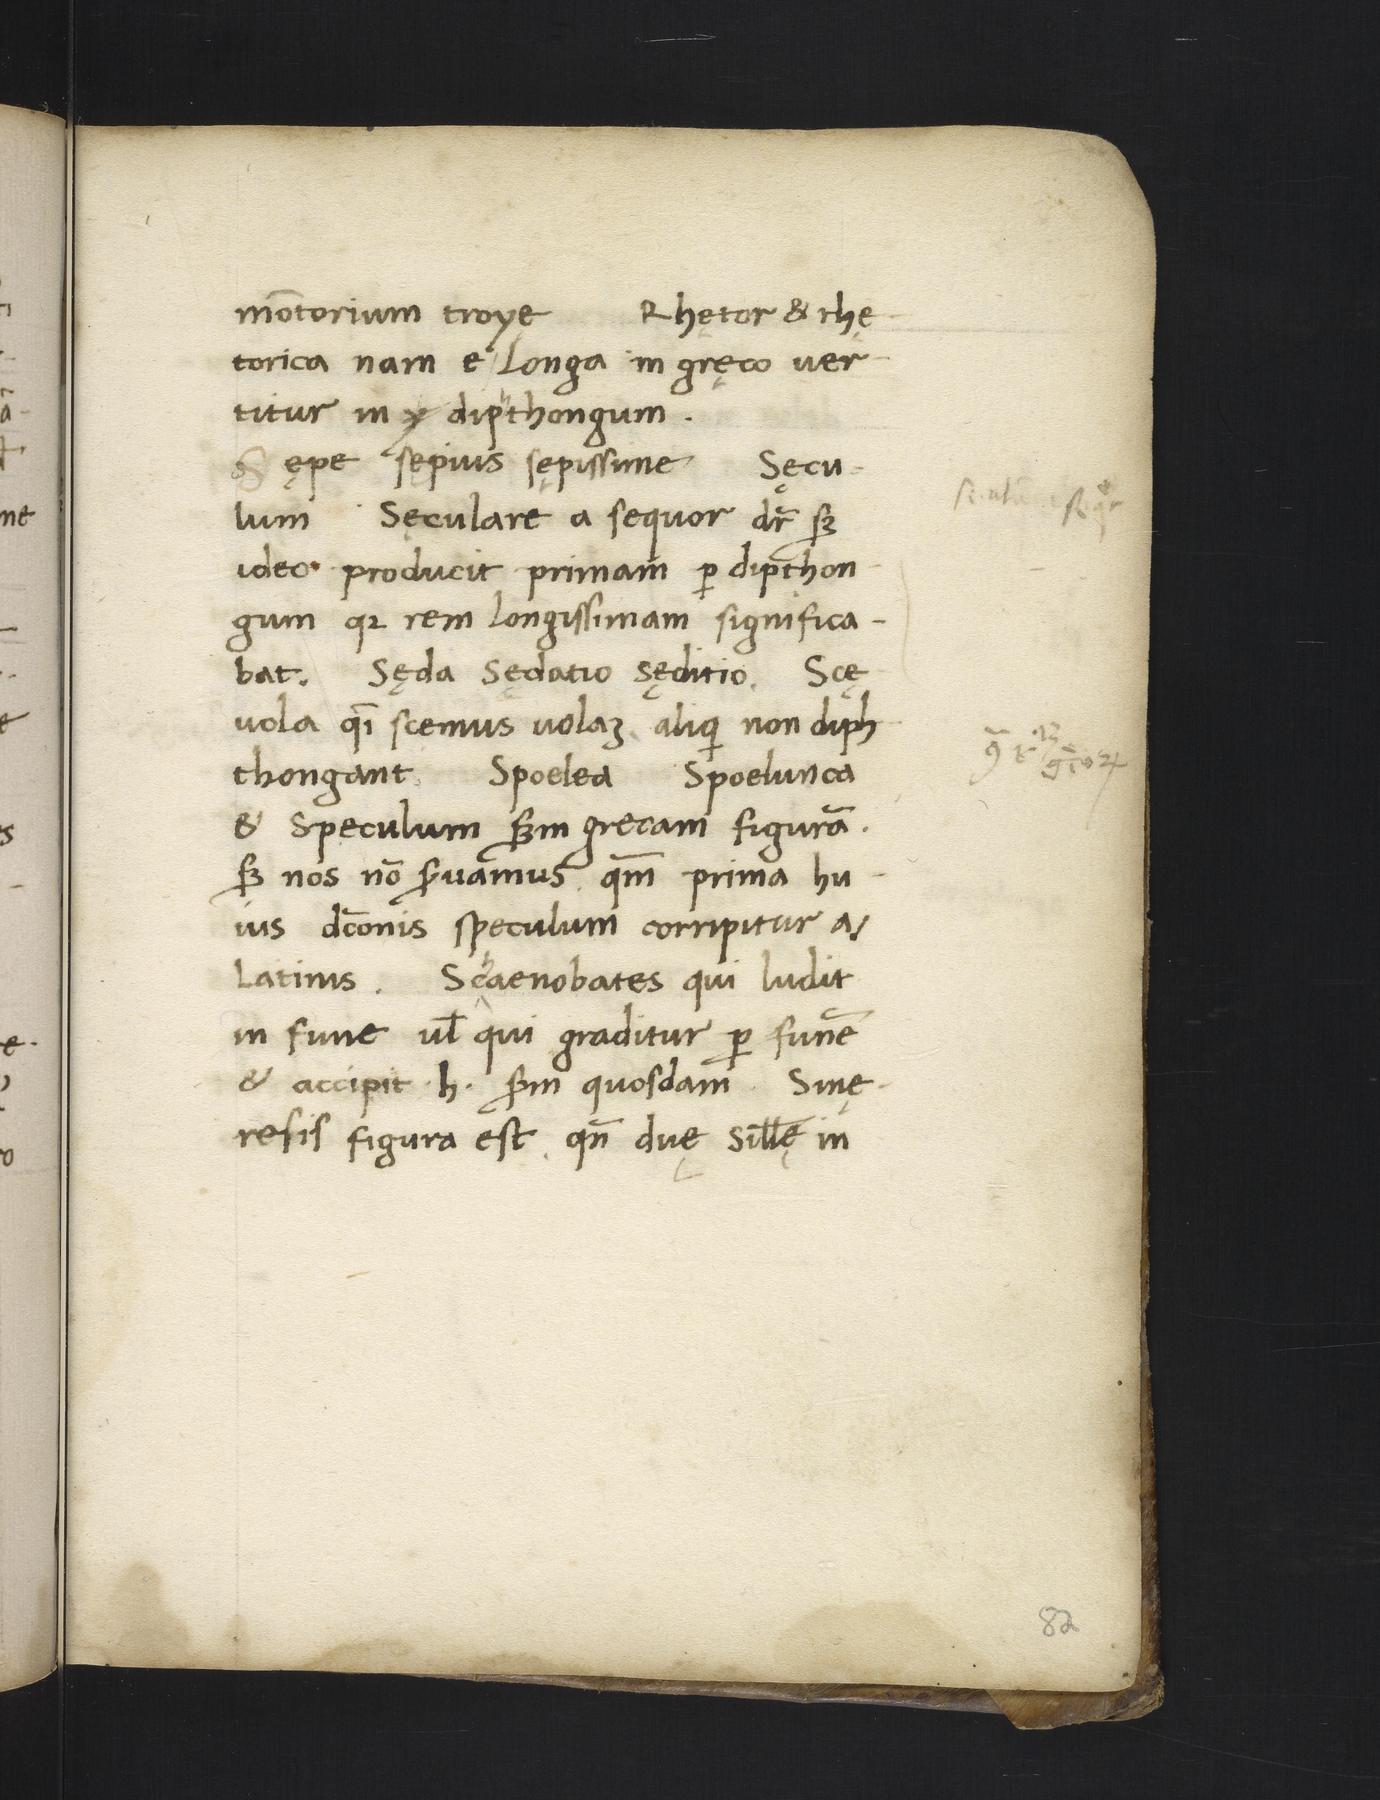 mōtorium troyę Rhętor & rhę-
torica nam e longa in gręco ver-
titur in y dipthongum.
Sępe sępius sępissime Sęcu-
lum Sęculare a sequor dr̄ sꝫ
ideo producit primam ꝑ dipthon-
gum qꝛ rem longissimam significa-
bat. Sęda Sędatio Sęditio. Scę-
uola qī scemus uolaꝫ aliqi non diph-
thongant. Spoelea Spoelunca
& Speculum sꝫm grecam figurā.
sꝫ nos nō s̄uamus. qm̄ prima hu-
ius dc̄onis speculum corripitur a/
Latinis. Schaenobates qui ludit
in fune ul̄ qui graditur ꝑ funē
& accipit .h. sꝫm quosdam. Sinę-
resis figura est. qn̄ duę sill̄ę in
82